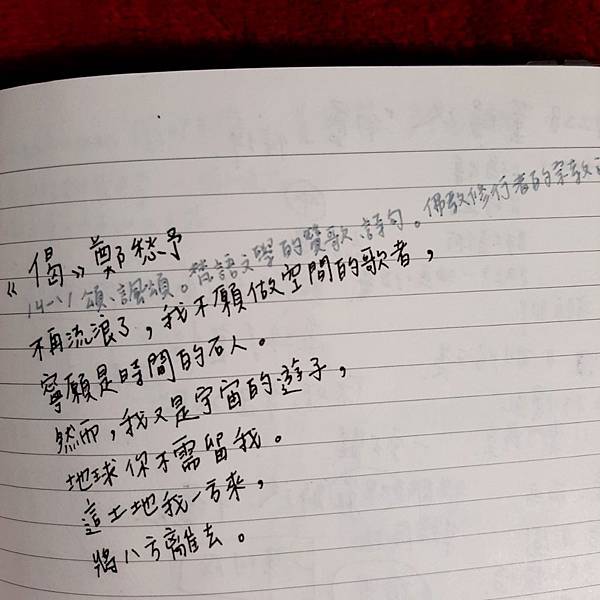 《偈》鄭愁予
ㄐㄧˋ 頌、諷頌。梵語文學的讚歌、詩句。佛教修行者的宗教
不再流浪了，我不願做空間的歌者，
寧願是時間的石人。
然而，我又是宇宙的遊子，
地球你不需留我。
這土地我一方來，
將八方離去。